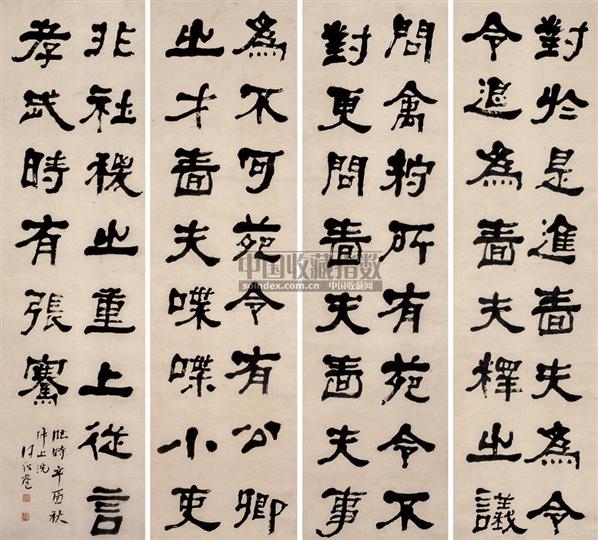 對於是進嗇夫為令
令退為嗇夫釋之議
問禽狩所有苑令不
對更問嗇夫嗇夫事
為不可苑令有公卿
之才嗇夫喋喋小吏
非社稷之重上從言
孝武時有張騫
臨時辛酉秋
仲上浣
何紹基
中国收藏指数
soindex.com.cn 中国收藏网